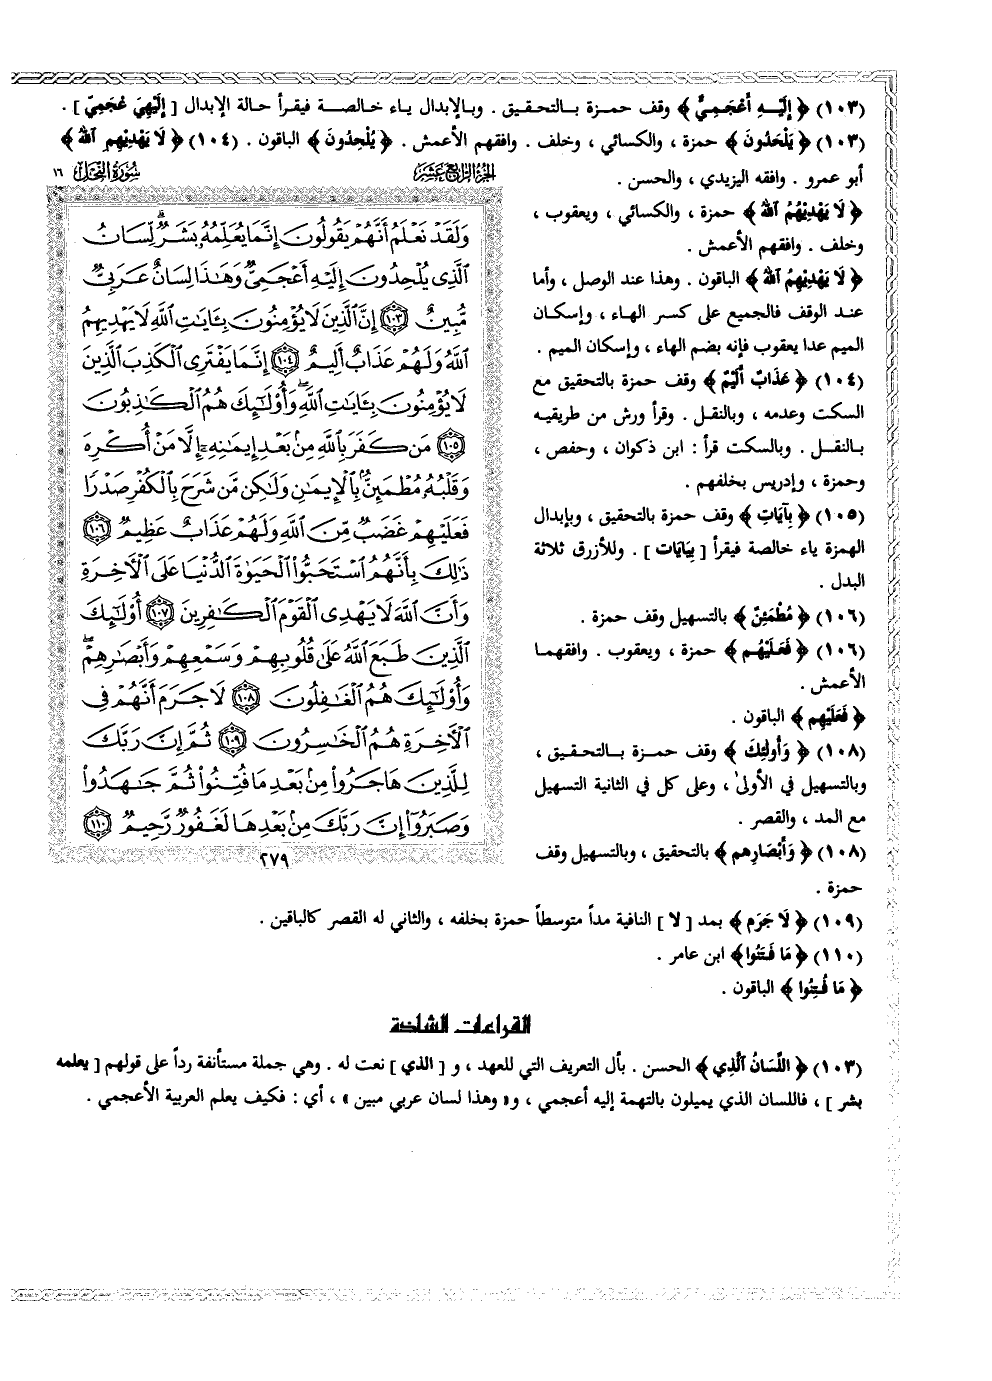 (١٠٣) ﴿ إِلَيْهِ أَعْجَمِيٌّ ﴾ وقف حمزة بالتحقيق . وبالإبدال ياء خالصة فيقرأ حالة الإبدال [ إِلَيْهِيَ عْجَمِيّ ] .
(١٠٣) ﴿ يَلْحَدُونَ ﴾ حمزة ، والكسائي ، وخلف . وافقهم الأعمش . ﴿ يُلْحِدُونَ ﴾ الباقون . (١٠٤) ﴿ لَا يَهْدِيهِمِ اللَّهُ ﴾
أبو عمرو . وافقه اليزيدي ، والحسن .
﴿ لَا يَهْدِيهُمُ اللَّهُ ﴾ حمزة ، والكسائي ، ويعقوب ،
وخلف . وافقهم الأعمش .
﴿ لَا يَهْدِيهِمُ اللَّهُ ﴾ الباقون . وهذا عند الوصل ، وأما
عند الوقف فالجميع على كسر الهاء ، وإسكان
الميم عدا يعقوب فإنه بضم الهاء ، وإسكان الميم .
(١٠٤) ﴿ عَذَابٌ أَلِيمٌ ﴾ وقف حمزة بالتحقيق مع
السكت وعدمه ، وبالنقل . وقرأ ورش من طريقيه
بالنقل . وبالسكت قرأ : ابن ذكوان ، وحفص ،
وحمزة ، وإدريس بخلفهم .
(١٠٥) ﴿ بِآيَاتِ ﴾ وقف حمزة بالتحقيق ، وبإبدال
الهمزة ياء خالصة فيقرأ [ بِيَايَات ] . وللأزرق ثلاثة
البدل .
(١٠٦) ﴿ مُطْمَئِنٌّ ﴾ بالتسهيل وقف حمزة .
(١٠٦) ﴿ فَعَلَيْهُم ﴾ حمزة ، ويعقوب . وافقهما
الأعمش .
﴿ فَعَلَيْهِم ﴾ الباقون .
(١٠٨) ﴿ وَأُولَئِكَ ﴾ وقف حمزة بالتحقيق ،
وبالتسهيل في الأولىٰ ، وعلى كل في الثانية التسهيل
مع المد ، والقصر .
(١٠٨) ﴿ وَأَبْصَارِهِم ﴾ بالتحقيق ، وبالتسهيل وقف
حمزة .
الجزء الرابع عشر
سورة النحل ١٦
وَلَقَدْ نَعْلَمُ أَنَّهُمْ يَقُولُونَ إِنَّمَا يُعَلِّمُهُ بَشَرٌ ۗ لِّسَانُ
ٱلَّذِى يُلْحِدُونَ إِلَيْهِ أَعْجَمِىٌّ وَهَٰذَا لِسَانٌ عَرَبِىٌّ
مُّبِينٌ ١٠٣ إِنَّ ٱلَّذِينَ لَا يُؤْمِنُونَ بِـَٔايَٰتِ ٱللَّهِ لَا يَهْدِيهِمُ
ٱللَّهُ وَلَهُمْ عَذَابٌ أَلِيمٌ ١٠٤ إِنَّمَا يَفْتَرِى ٱلْكَذِبَ ٱلَّذِينَ
لَا يُؤْمِنُونَ بِـَٔايَٰتِ ٱللَّهِ ۖ وَأُو۟لَٰٓئِكَ هُمُ ٱلْكَٰذِبُونَ
١٠٥ مَن كَفَرَ بِٱللَّهِ مِنۢ بَعْدِ إِيمَٰنِهِۦٓ إِلَّا مَنْ أُكْرِهَ
وَقَلْبُهُۥ مُطْمَئِنٌّۢ بِٱلْإِيمَٰنِ وَلَٰكِن مَّن شَرَحَ بِٱلْكُفْرِ صَدْرًا
فَعَلَيْهِمْ غَضَبٌ مِّنَ ٱللَّهِ وَلَهُمْ عَذَابٌ عَظِيمٌ ١٠٦
ذَٰلِكَ بِأَنَّهُمُ ٱسْتَحَبُّوا۟ ٱلْحَيَوٰةَ ٱلدُّنْيَا عَلَى ٱلْءَاخِرَةِ
وَأَنَّ ٱللَّهَ لَا يَهْدِى ٱلْقَوْمَ ٱلْكَٰفِرِينَ ١٠٧ أُو۟لَٰٓئِكَ
ٱلَّذِينَ طَبَعَ ٱللَّهُ عَلَىٰ قُلُوبِهِمْ وَسَمْعِهِمْ وَأَبْصَٰرِهِمْ ۖ
وَأُو۟لَٰٓئِكَ هُمُ ٱلْغَٰفِلُونَ ١٠٨ لَا جَرَمَ أَنَّهُمْ فِى
ٱلْءَاخِرَةِ هُمُ ٱلْخَٰسِرُونَ ١٠٩ ثُمَّ إِنَّ رَبَّكَ
لِلَّذِينَ هَاجَرُوا۟ مِنۢ بَعْدِ مَا فُتِنُوا۟ ثُمَّ جَٰهَدُوا۟
وَصَبَرُوٓا۟ إِنَّ رَبَّكَ مِنۢ بَعْدِهَا لَغَفُورٌ رَّحِيمٌ ١١٠
٢٧٩
(١٠٩) ﴿ لَا جَرَمَ ﴾ بمد [ لا ] النافية مداً متوسطاً حمزة بخلفه ، والثاني له القصر كالباقين .
(١١٠) ﴿ مَا فَتَنُوا ﴾ ابن عامر .
﴿ مَا فُتِنُوا ﴾ الباقون .
القراءات الشاذة
(١٠٣) ﴿ اللِّسَانُ الَّذِي ﴾ الحسن . بأل التعريف التي للعهد ، و [ الذي ] نعت له . وهي جملة مستأنفة رداً على قولهم [ يعلمه
بشر ] ، فاللسان الذي يميلون بالتهمة إليه أعجمي ، و« وهذا لسان عربي مبين » ، أي : فكيف يعلم العربية الأعجمي .